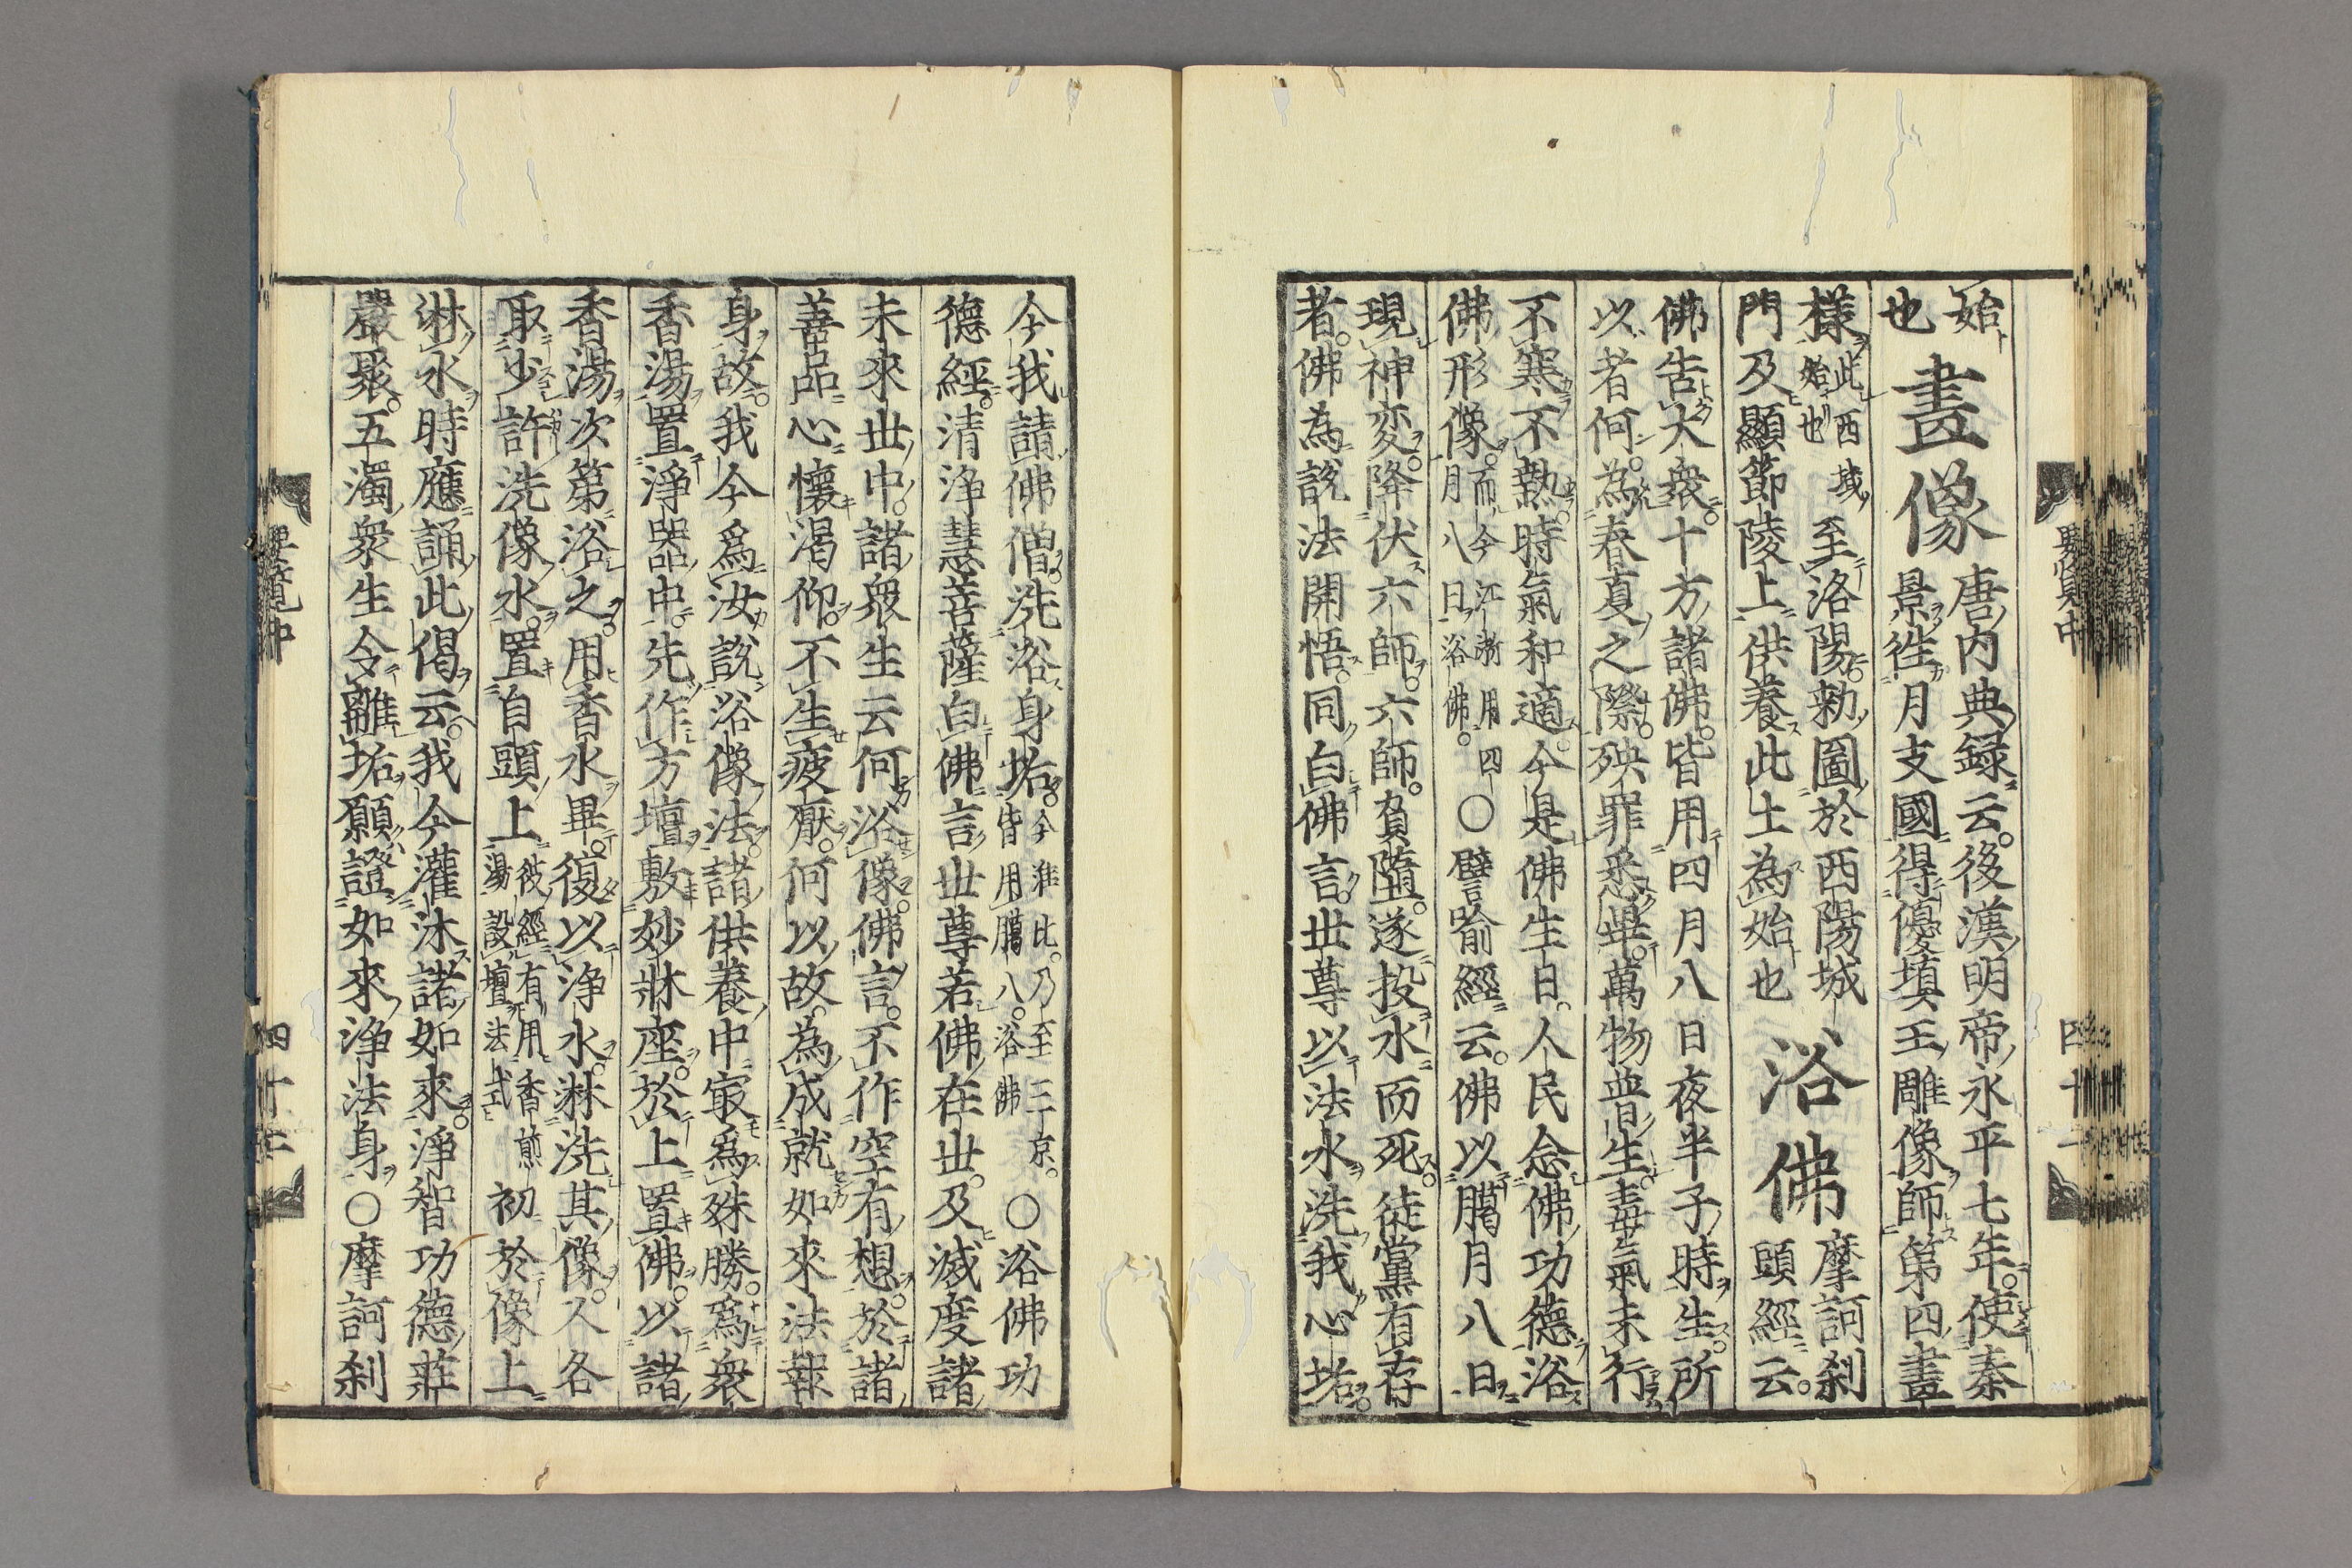 始
也
畫像
唐内典録云。後漢明帝永平七年。使秦
景徃月支國得優填王雕像師第四畫
樣此西域
始也
至洛陽。勑圖於西陽城
門及顯節陵上供養此土為始也
浴佛
摩訶刹
頭經云。
佛告大衆。十方諸佛。皆用四月八日夜半子時生。所
以者何。為春夏之際。殃罪悉畢。萬物普生。毒氣未行
不寒不熱。時氣和適。今是佛生日。人民念佛功德浴
佛形像。而今江浙用四
月八日浴佛。
○譬喻經云。佛以臈月八日
現神変。降伏六師。六師。負墮。遂投水而死。徒黨有存
者。佛為説法開悟。同白佛言。世尊以法水洗我心垢。
今我請佛僧。洗浴身垢。今准此。乃至三京。
皆用臈八。浴佛
○浴佛功
德經。清淨慧菩薩白佛言世尊若佛在世。及滅度諸
未來世中。諸衆生云何浴像。佛言。不作空有想。於諸
善品心懷渴仰。不生疲厭。何以故。為成就如來法報
身故。我今爲汝說浴像法。諸供養中寂爲殊勝。爲衆
香湯置淨器中。先作方壇敷妙牀座。於上置佛。以諸
香湯次第浴之。用香水畢。復以淨水淋洗其像。人各
取少許洗像水。置自頭上彼經有用香煎
湯設壇法式
初於像上
淋水時應誦此偈云。我今灌沐諸如來。淨智功德莊
嚴聚。五濁衆生令離垢願證如來淨法身○摩訶刹
要覽中
四十二